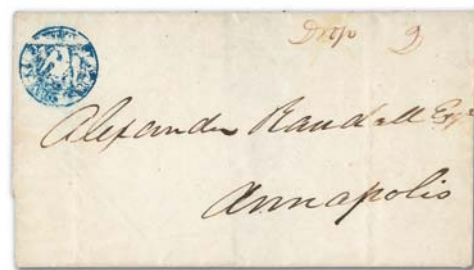 Drop 2
Alexander Randall Esqr
Annapolis